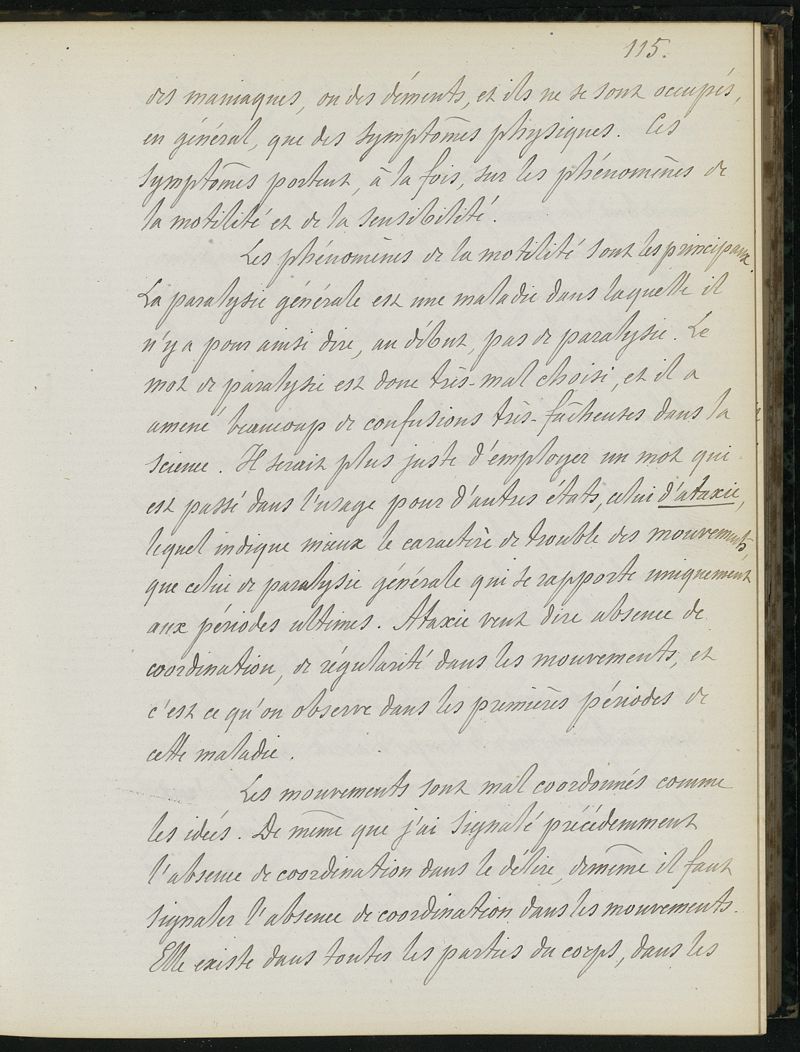 115.
des maniaques, ou des déments, et ils ne se sont occupés,
en général, que des symptômes physiques. Ces
symptômes portent, à la fois, sur les phénomènes de
la motilité et de la sensibilité.
Les phénomènes de la motilité sont les principaux.
La paralysie générale est une maladie dans laquelle il
n'y a pour ainsi dire, au début, pas de paralysie. Le
mot de paralysie est donc très-mal choisi, et il a
amené beaucoup de confusions très-fâcheuses dans la
science. Il serait plus juste d'employer un mot qui
est passé dans l'usage pour d'autres états, celui d'ataxie,
lequel indique mieux le caractère de trouble des mouvements,
que celui de paralysie générale qui se rapporte uniquement
aux périodes ultimes. Ataxie veut dire absence de
coordination, de régularité dans les mouvements, et
c'est ce qu'on observe dans les premières périodes de
cette maladie.
Les mouvements sont mal coordonnés comme
les idées. De même que j'ai signalé précédemment
l'absence de coordination dans le délire, de même il faut
signaler l'absence de coordination dans les mouvements.
Elle existe dans toutes les parties du corps, dans les